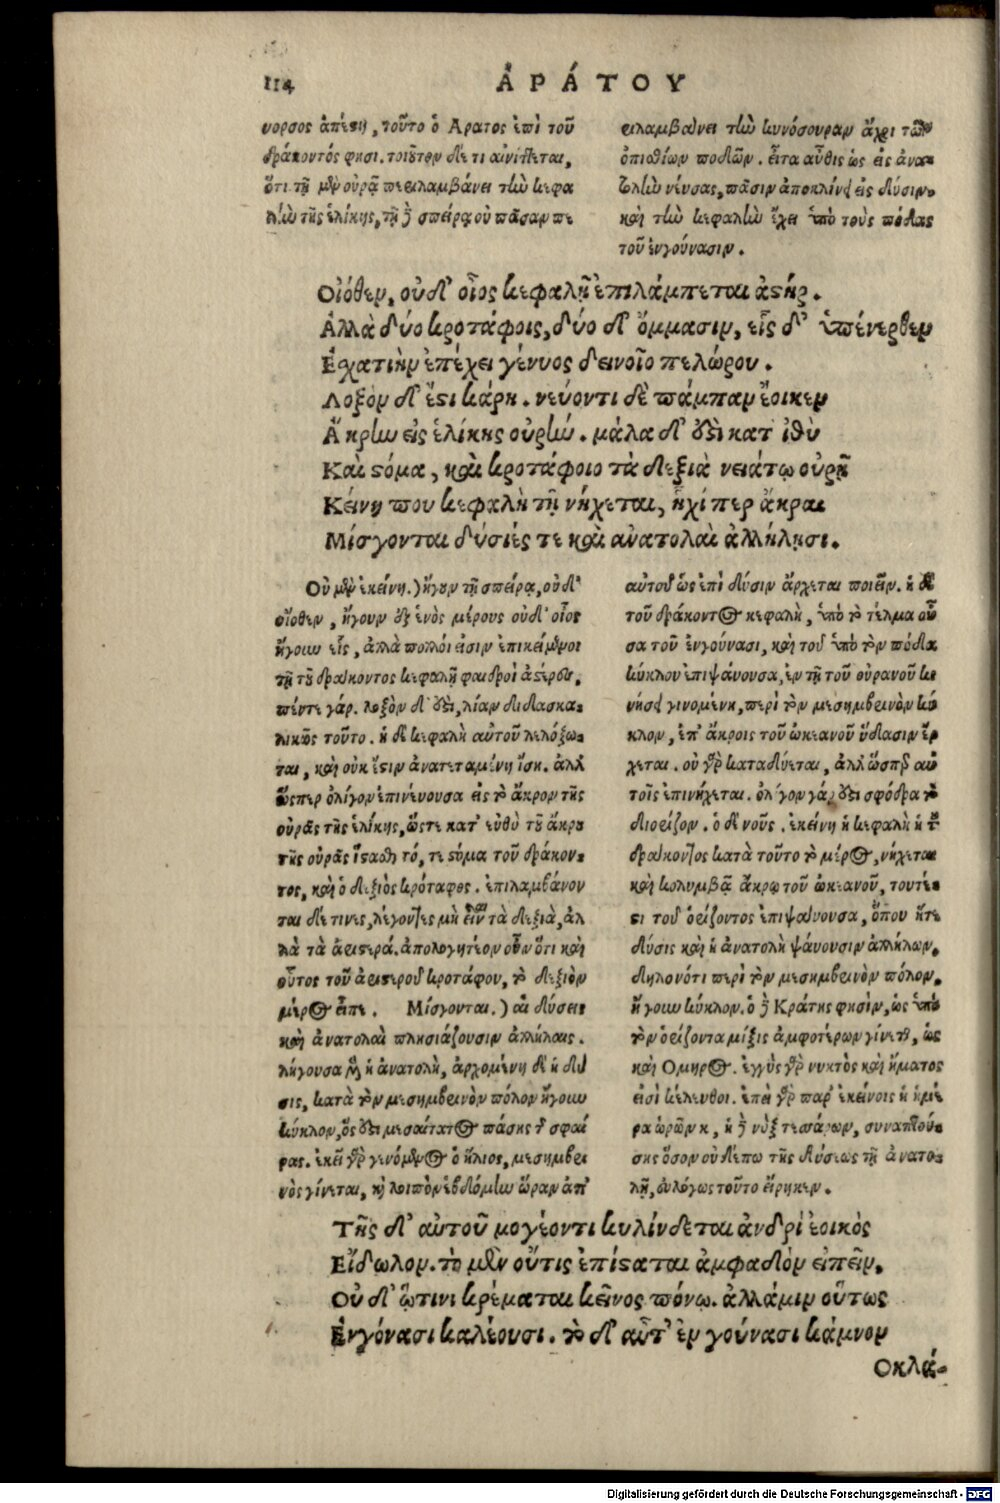 114
ἈΡΆΤΟΥ
νορσος ἀπέςη, τοῦτο ὁ Ἄρατος ἐπὶ τοῦ
δράκοντός φησι. τοιοῦτον δέ τι αἰνίττεται,
ὅτι τῇ μὲν οὐρᾷ πειλαμβάνει τὴν κεφα
λὴν τῆς ἑλίκης, τῇ δὲ σπείρᾳ οὐ πᾶσαν πε
ειλαμβάνει τὴν κυνόσουραν ἄχρι τῶν
ὀπισθίων ποδῶν. εἶτα αὖθις ὡς εἰς ἀνα-
τολὴν νεύσας, πᾶσιν ἀποκλίνει εἰς δύσιν.
καὶ τὴν κεφαλὴν ἔχει ὑπὸ τοὺς πόδας
τοῦ ἐνγούνασιν.
Οἰόθεν, οὐδ' οἶος κεφαλῇ ἐπιλάμπεται ἀςήρ.
Ἀλλὰ δύο κροτάφοις, δύο δ' ὄμμασιν, εἷς δ' ὑπένερθεν
Ἐχατιὴν ἐπέχει γένυος δεινοῖο πελώρου.
Λοξὸν δ' ἔςι κάρη. νεύοντι δὲ πάμπαν ἔοικεν
Ἄκρην εἰς ἑλίκης οὐρήν. μάλα δ' ὅςὶ κατ ἰθὺ
Καὶ ςόμα, καὶ κροτάφοιο τὰ δεξιὰ νειάτῳ οὐρῇ
Κείνη που κεφαλὴ τῇ νήχεται, ἧχί περ ἄκραι
Μίσγονται δύσιές τε καὶ ἀνατολαὶ ἀλλήλῃσι.
Οὐ μὲν ἐκείνη.) ἤγουν τῇ σπείρᾳ, οὐδ'
οἴοθεν, ἤγουν ἐξ ἑνὸς μέρους οὐδ' οἶος
ἤγουν εἷς, ἀλλὰ πολλοί εἰσιν ἐπικείμενοι
τῇ τοῦ δράκοντος κεφαλῇ φαιδροὶ ἀςέρες.
πέντε γάρ. λοξὸν δ' ὅςὶ, λίαν διδασκα-
λικῶς τοῦτο. ἡ δὲ κεφαλὴ αὐτοῦ λελόξω-
ται, καὶ οὐκ ἔςιν ἀνατεταμένη ἴση. ἀλλ'
ὥσπερ ὀλίγον ἐπινεύουσα εἰς τὸ ἄκρον τῆς
οὐρᾶς τῆς ἑλίκης, ὥςτε κατ' εὐθὺ τοῦ ἄκρου
τῆς οὐρᾶς ἵςασθαι τό, τε ςόμα τοῦ δράκον-
τος, καὶ ὁ δεξιὸς κρόταφος. ἐπιλαμβάνον
ται δέ τινες, λέγοντες μὴ εἶναι τὰ δεξιὰ, ἀλ
λὰ τὰ ἀριςερά. ἀπολογητέον οὖν ὅτι καὶ
οὗτος τοῦ ἀριςεροῦ κροτάφου, τὸ δεξιὸν
μέρος εἶπε. Μίσγονται.) αἱ δύσεις
καὶ ἀνατολαὶ πλησιάζουσιν ἀλλήλαις.
λήγουσα μὲν ἡ ἀνατολὴ, ἀρχομένη δὲ ἡ δύ
σις, κατὰ τὸν μεσημβρινὸν πόλον ἤγουν
κύκλον, ὅς ὅςι μεσαίτατος πάσης τῆς σφαί
ρας. ἐκεῖ γὰρ γενόμενος ὁ ἥλιος, μεσημβρι
νὸς γίνεται, καὶ λοιπὸν ἑβδόμην ὥραν ἀπ'
αὐτοῦ ὡς ἐπὶ δύσιν ἄρχεται ποιεῖν. ἡ δὲ
τοῦ δράκοντος κεφαλὴ, ὑπὸ τὸ τέλμα οὖ
σα τοῦ ἐνγούνασι, καὶ τοῦ ὑπὸ τὸν πόδα
κύκλου ἐπιψαύουσα, ἐν τῇ τοῦ οὐρανοῦ κι
νήσει γινομένη, περὶ τὸν μεσημβρινὸν κύ
κλον, ἐπ' ἄκροις τοῦ ὠκεανοῦ ὕδασιν ἔρ
χεται. οὐ γὰρ καταδύεται, ἀλλ' ὥσπερ αὐ
τοῖς ἐπινήχεται. ὀλίγον γάρ ὅςι σφόδρα τὸ
διορίζον. ὁ δὲ νοῦς. ἐκείνη ἡ κεφαλὴ ἡ τοῦ
δράκοντος κατὰ τοῦτο τὸ μέρος, νήχεται
καὶ κολυμβᾷ ἄκρῳ τοῦ ὠκεανοῦ, τουτέ-
ςι τοῦ ὁρίζοντος ἐπιψαύουσα, ὅπου ἥτε
δύσις καὶ ἡ ἀνατολὴ ψαύουσιν ἀλλήλων.
δηλονότι περὶ τὸν μεσημβρινὸν πόλον,
ἤγουν κύκλον. ὁ δὲ Κράτης φησὶν, ὡς ὑπὸ
τὸν ὁρίζοντα μίξις ἀμφοτέρων γίνεται, ὡς
καὶ Ὅμηρος. ἐγγὺς γὰρ νυκτὸς καὶ ἤματος
εἰσὶ κέλευθοι. ἐπεὶ γὰρ παρ' ἐκείνοις ἡ ἡμέ
ρα ὡρῶν κ, ἡ δὲ νὺξ τεσσάρων, συναπτού-
σης ὅσον οὐδέπω τῆς δύσεως τῇ ἀνατο-
λῇ, εὐλόγως τοῦτο εἴρηκεν.
Τῆς δ' αὐτοῦ μογέοντι κυλίνδεται ἀνδρὶ ἐοικὸς
Εἴδωλον. τὸ μὲν οὔτις ἐπίςαται ἀμφαδὸν εἰπεῖν,
Οὐδ' ᾧτινι κρέμαται κεῖνος πόνῳ. ἀλλάμιν οὕτως
Ἐνγόνασι καλέουσι. τὸ δ' αὖτ' ἐν γούνασι κάμνον
Οκλά-
Digitalisierung gefördert durch die Deutsche Forschungsgemeinschaft - DFG